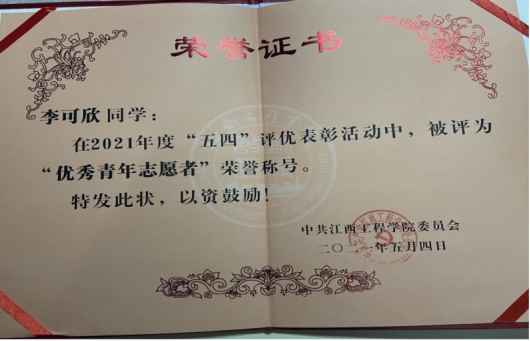 荣誉证书
李可欣同学：
在2021年度“五四”评优表彰活动中，被评为
“优秀青年志愿者”荣誉称号。
特发此状，以资鼓励！
中共江西工程学院委员会
二〇二一年五月四日